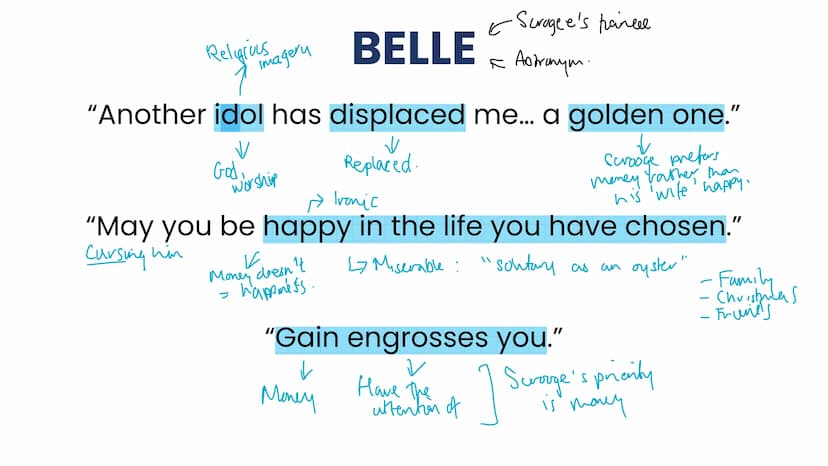 BELLE
Scrogee's
Aotronym.
Religious
imagery
"Another idol has displaced me... a golden one."
God,
worship
Replaced.
Scrooge prefers
money rather than
his 'wife' happy.
Ironic
"May you be happy in the life you have chosen."
Cursing him
Money doesn't
= happiness.
Miserable : "solitary as an oyster"
- Family
- Christmas
- Friends
"Gain engrosses you."
Money
Have the
attention of
Scrooge's priority
is money